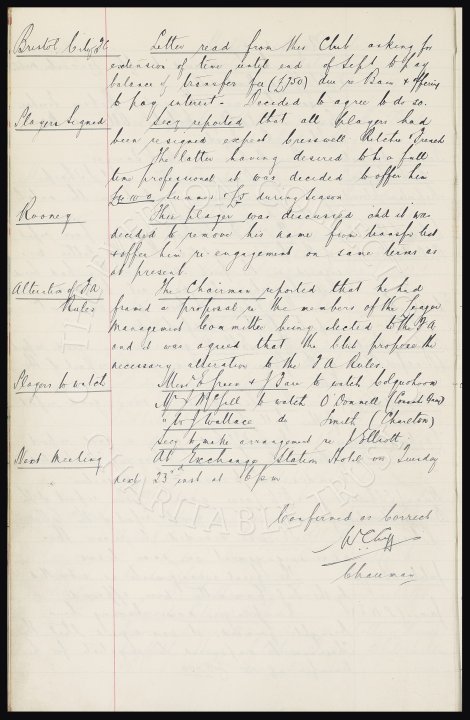 Bristol City FC Letter read from this Club asking for
extension of time until end of Sept to pay
balance of transfer fee (£750) due re Bain & offering
to pay interest. Decided to agree to do so.
Players Signed Secy reported that all players had
been resigned expect Cresswell Ritchie & French
The latter having desired to be a full
time professional it was decided to offer him
£4.10.0 Summer & £5 during Season
Rooney This player was discussed and it was
decided to remove his name from transfer list
& offer him re-engagement on same terms as
at present.
Alteration of FA The Chairman reported that he had
Rules framed a proposal re the members of the League
Management Committee being elected to the FA
and it was agreed that the Club propose the
necessary alteration to the FA Rules.
Players to watch Green & to watch Colquhoun
Mr McGill to watch O'Donnell
" J Wallace do Smith (Charlton)
Secy to make arrangement re Elliott
Next Meeting At Exchange Station Hotel on Tuesday
next 23rd inst at 6pm
Confirmed as Correct
W.C.Cuff
Chairman
CHARITABLE TRUST